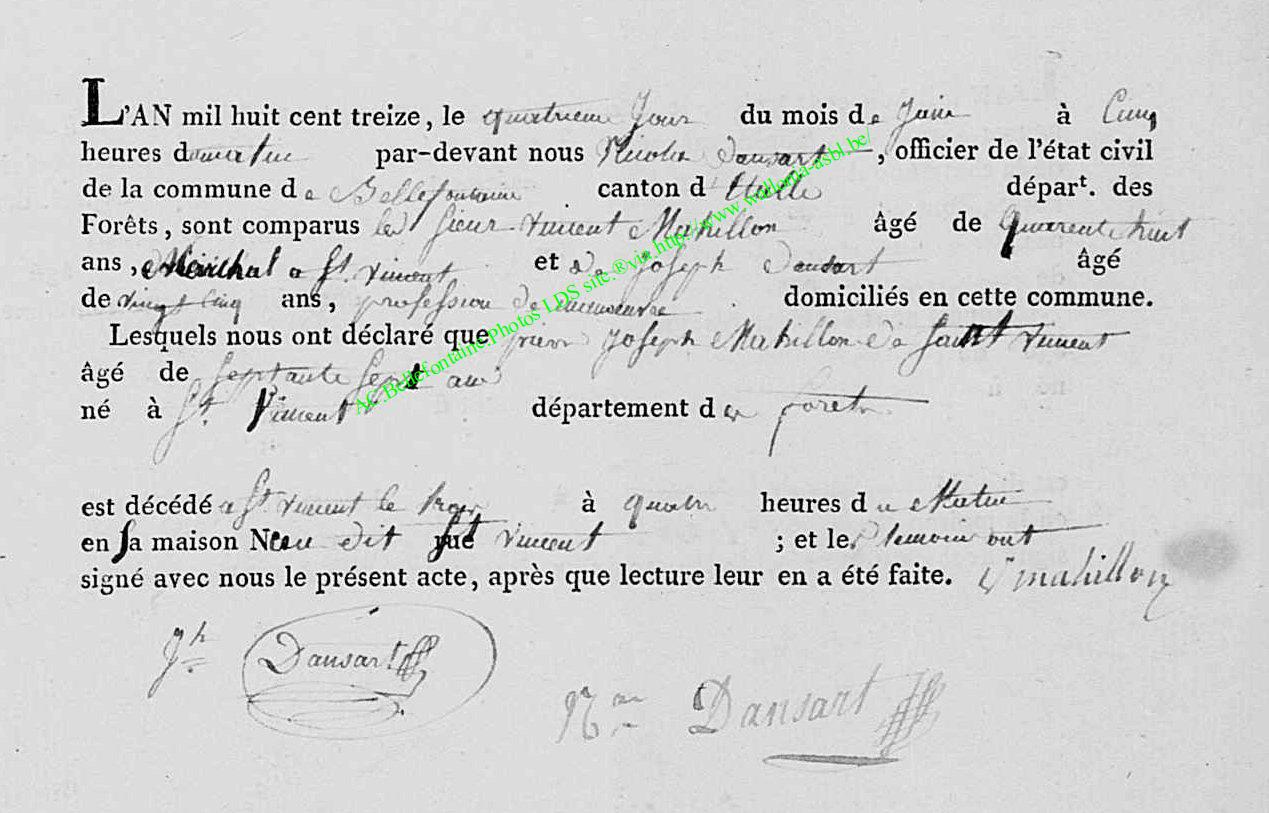 L'AN mil huit cent treize, le quatrieme Jour du mois de Juin à Cinq
heures du matin par-devant nous Nicolas Dansart, officier de l'état civil
de la commune de Bellefontaine canton d'Etalle dépar^t. des
Forêts, sont comparus les Sieur Vincent Mahillon âgé de quarente huit
ans, Marichal a St. Vincent et de Joseph Dansart âgé
de vingt cinq ans, profession de manoeuvre domiciliés en cette commune.
Lesquels nous ont déclaré que Joseph Mahillon de Saint Vincent
âgé de septante sept ans
né à St. Vincent département des foret
est décédé a St. Vincent le à quatre heures du Matin
en sa maison N dit Vincent ; et les temoin ont
signé avec nous le présent acte, après que lecture leur en a été faite. V mahillon
Jh Dansart
Nas Dansart
AC.Bellefontaine.Photos LDS site.®via.http://www.wallonia-asbl.be/